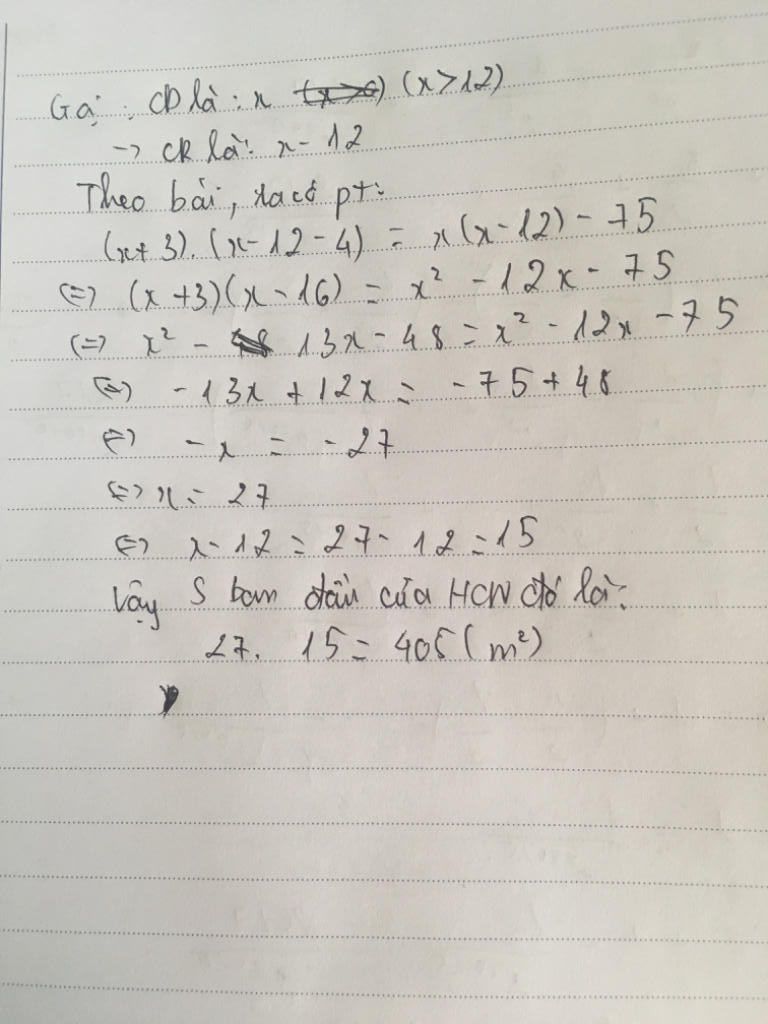 Gọi CD là: x (x>0) (x>12)
→ CR là: x - 12
Theo bài, ta có pt:
(x+3).(x-12-4) = x(x-12) - 75
⇔ (x+3)(x-16) = x² - 12x - 75
⇔ x² - 13x - 48 = x² - 12x - 75
⇔ -13x + 12x = -75 + 48
⇔ -x = -27
⇔ x = 27
⇔ x - 12 = 27 - 12 = 15
Vậy S ban đầu của HCN đó là:
27. 15 = 405 (m²)